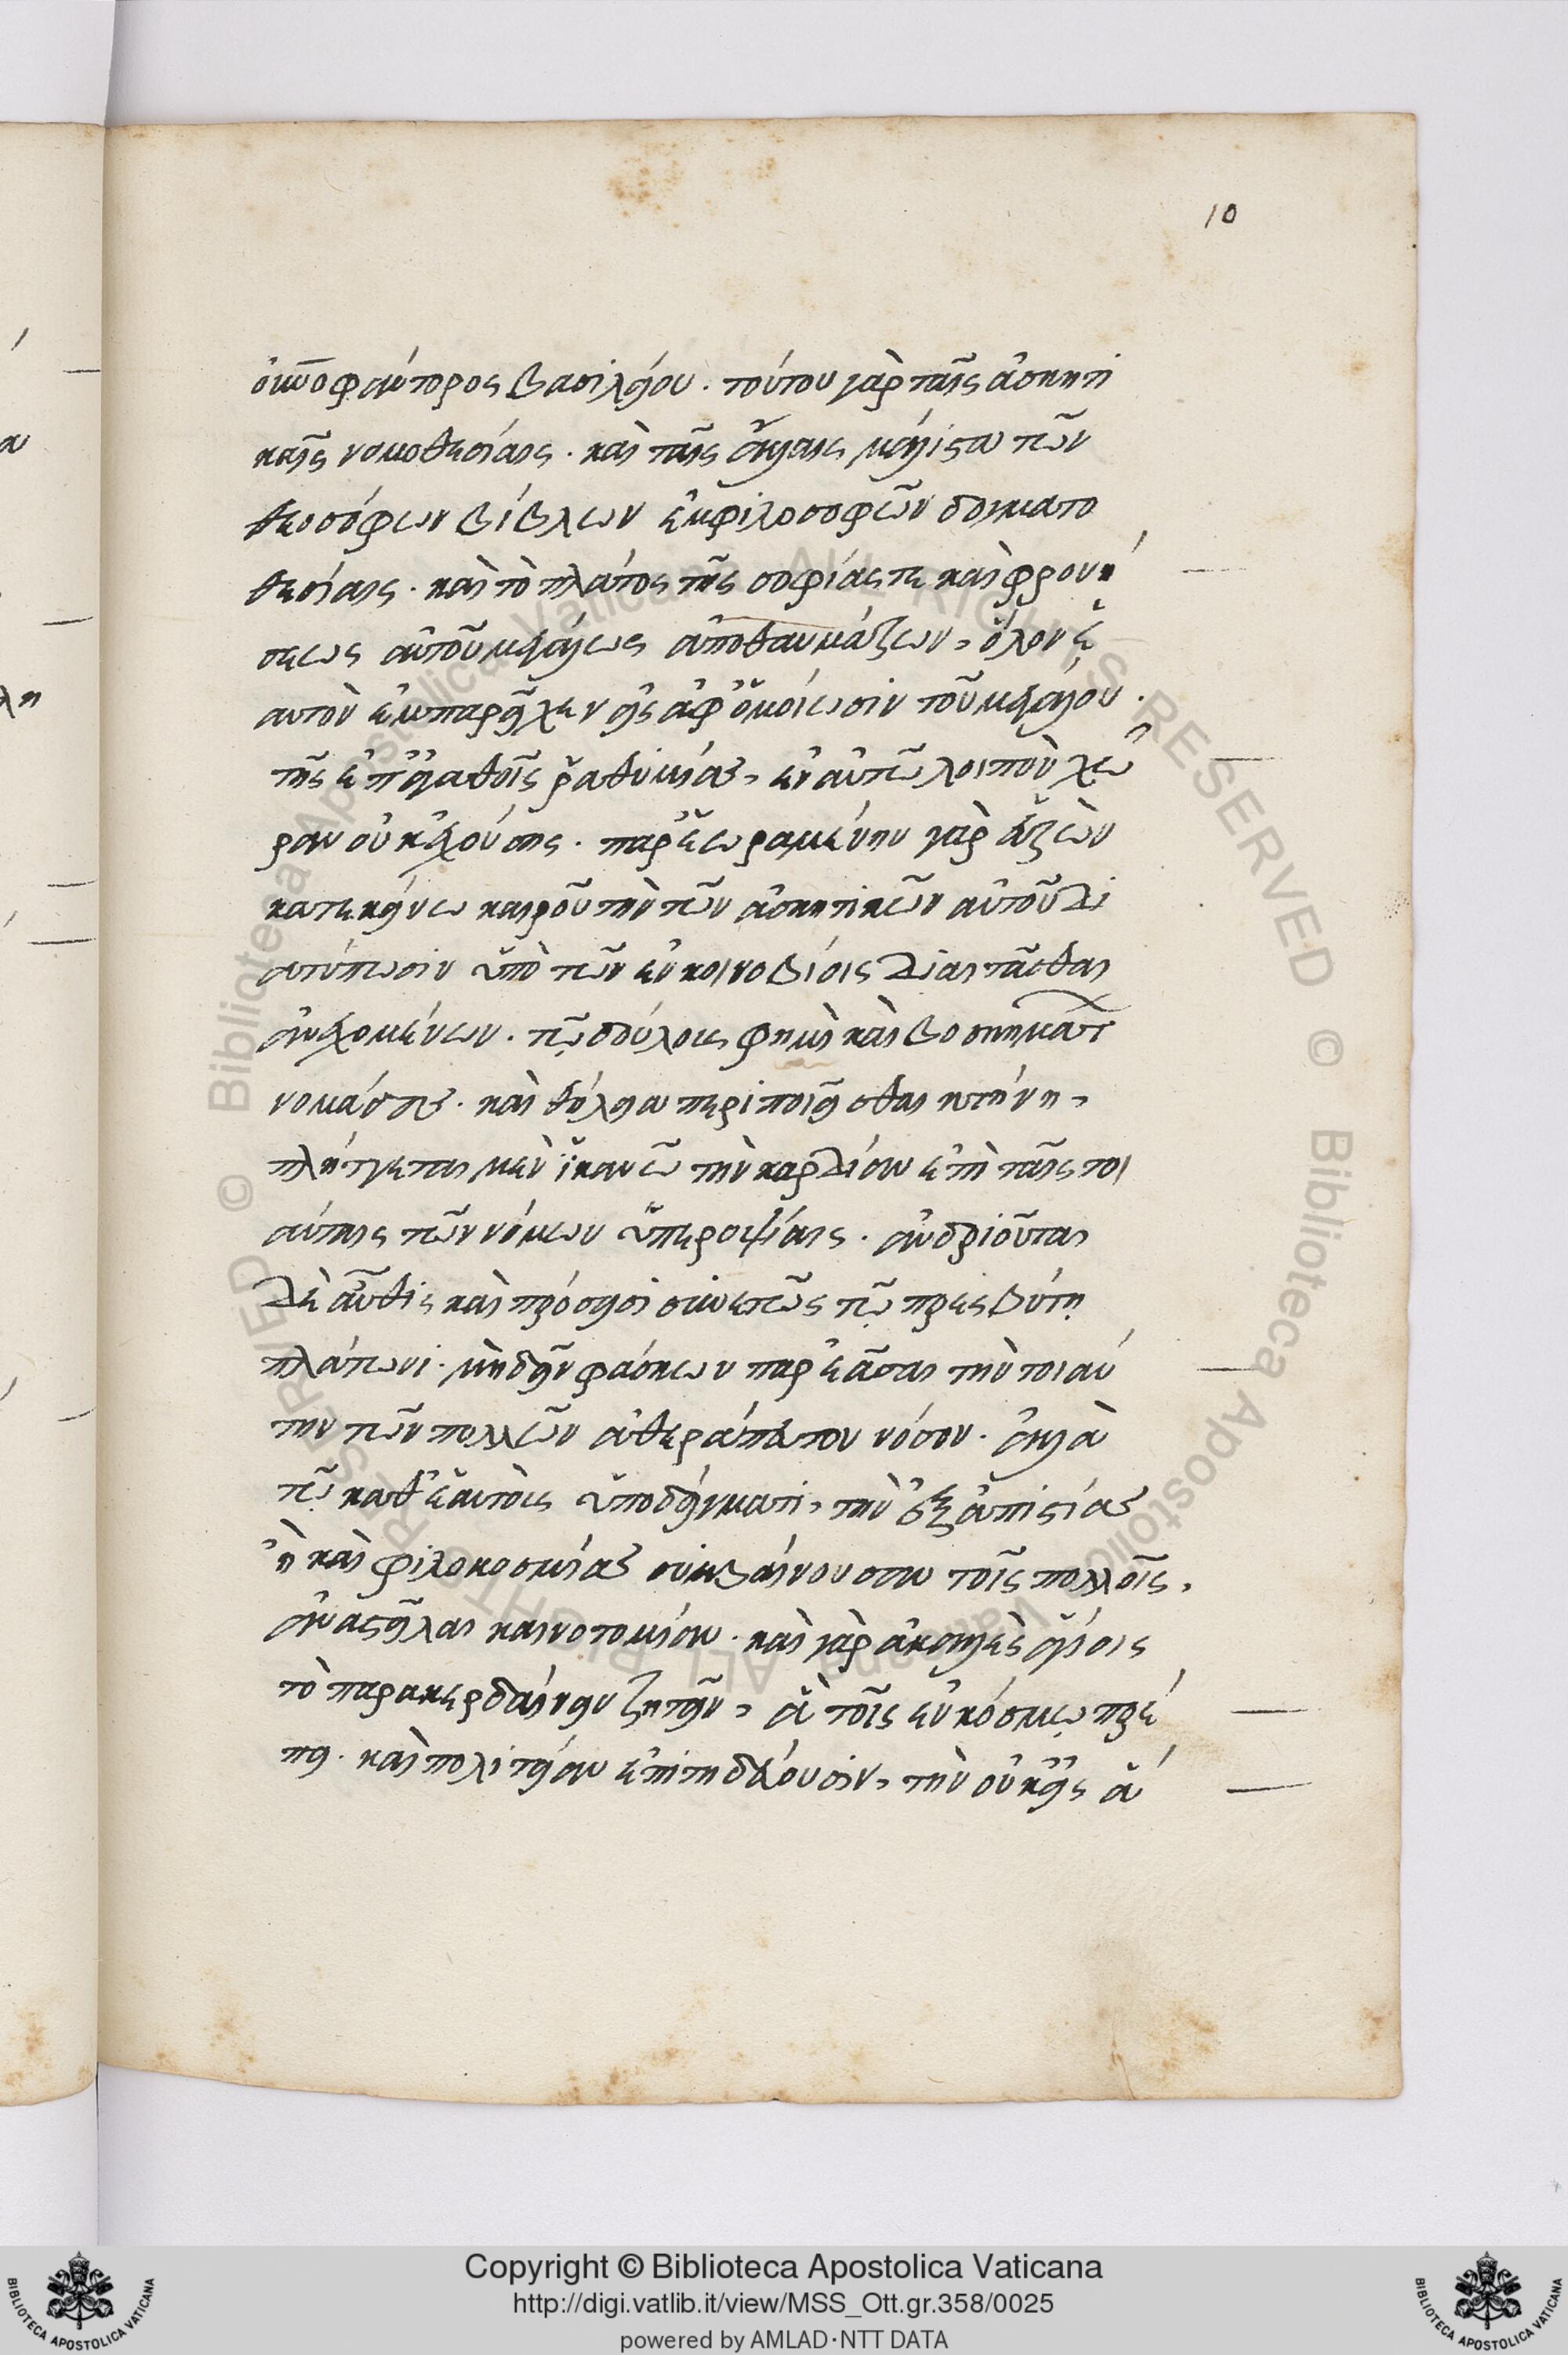 10
οὐνοφάντορος βασιλείου. τούτου γὰρ ταῖς ἀσκητι
καῖς νομοθεσίαις. καὶ ταῖς ἄλλαις μάλιστα τῶν
θεοσόφων βίβλων ἐμφιλοσοφῶν δογματο
θεσίαις. καὶ τὸ πλάτος τῆς σοφίας τε καὶ φρονή
σεως αὐτοῦ μεγάλως ἀποθαυμάζων, ὅλον ἑ
αυτὸν ἐμπαρεῖχεν εἰς ἀφομοίωσιν τοῦ μεγάλου.
τῆς ἐπ' ἀγαθοῖς ῥαθυμίας, ἐν αὐτῷ λοιπὸν χώ
ραν οὐκ ἐχούσης. παρεωραμένην γὰρ
κατεκείνω καιροῦ τὴν τῶν ἀσκητικῶν αὐτοῦ δι
ατύπωσιν ὑπὸ τῶν ἐν κοινοβίοις διαιτᾶσθαι
ἀνεχομένων. τῷ δούλοις φημὶ καὶ βοσκήματ
νομάς τε. καὶ θέλειν περιποιεῖσθαι κτήνη,
πλήττεται μὲν ἱκανῶ τὴν καρδίαν ἐπὶ ταῖς τοι
αύταις τῶν νόμων ὑπεροψίαις. ἀνδριοῦται
δὲ αὖθις καὶ πρόσεισι συνετῶς τῷ πρεσβύτῃ
πλάτωνι. μὴ δεῖν φάσκων παρεᾶσαι τὴν τοιαύ
την τῶν πολλῶν ἀθεράπευτον νόσον. ἀλλὰ
τῷ καθ' ἑαυτοὺς ὑποδείγματι, τὴν ἐξ ἀπιστίας
ἢ καὶ φιλοκοσμίας συμβαίνουσαν τοῖς πολλοῖς,
ἀναστεῖλαι καινοτομίαν. καὶ γὰρ ἀκαλλὲς ἁγίοις
τὸ παρακερδαίνειν ζητεῖν, ἃ τοῖς ἐν κόσμω πρέ
πει. καὶ πολιτείαν ἐπιτηδεύουσιν, τὴν οὐκ εἰς ἀ
Copyright © Biblioteca Apostolica Vaticana
http://digi.vatlib.it/view/MSS_Ott.gr.358/0025
powered by AMLAD·NTT DATA
BIBLIOTECA APOSTOLICA VATICANA
BIBLIOTECA APOSTOLICA VATICANA